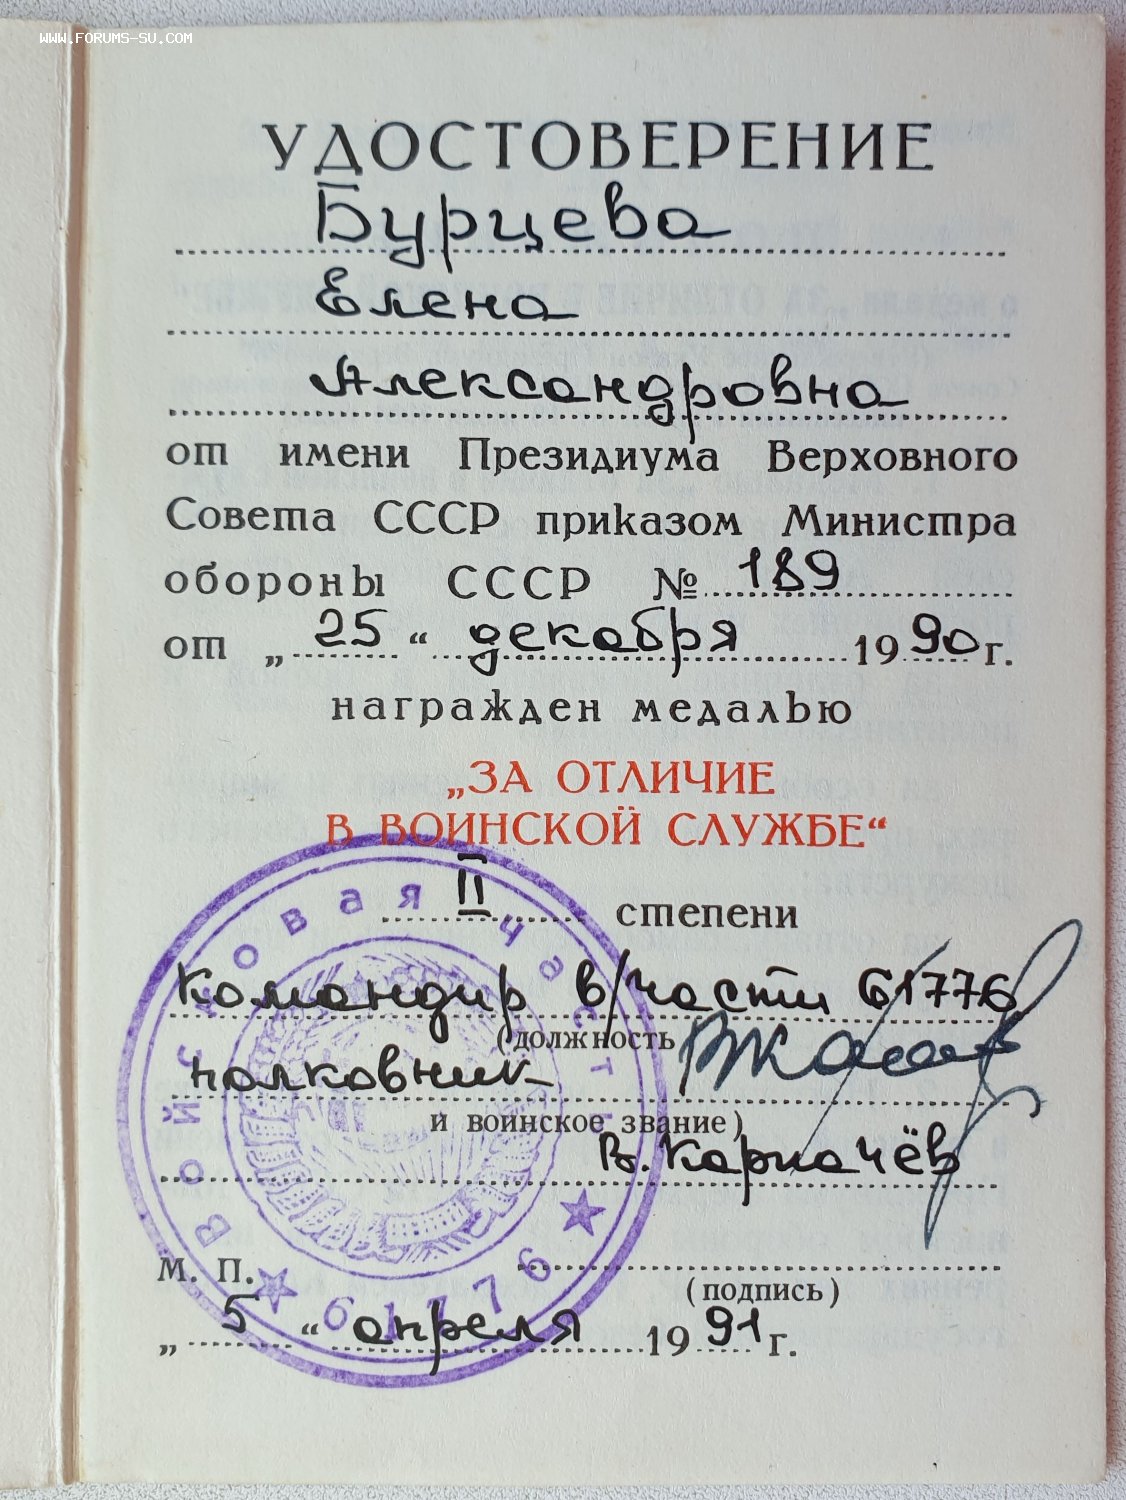 WWW.FORUMS-SU.COM
УДОСТОВЕРЕНИЕ
Бурцева
Елена
Александровна
от имени Президиума Верховного
Совета СССР приказом Министра
обороны СССР № 189
от „ 25 “ декабря 1990 г.
награжден медалью
„ЗА ОТЛИЧИЕ
В ВОИНСКОЙ СЛУЖБЕ“
II степени
Командир в/части 61776
(должность
полковник
и воинское звание)
В. Карпачёв
М. П.
(подпись)
„ 5 “ апреля 1991 г.
Войсковая часть
61776